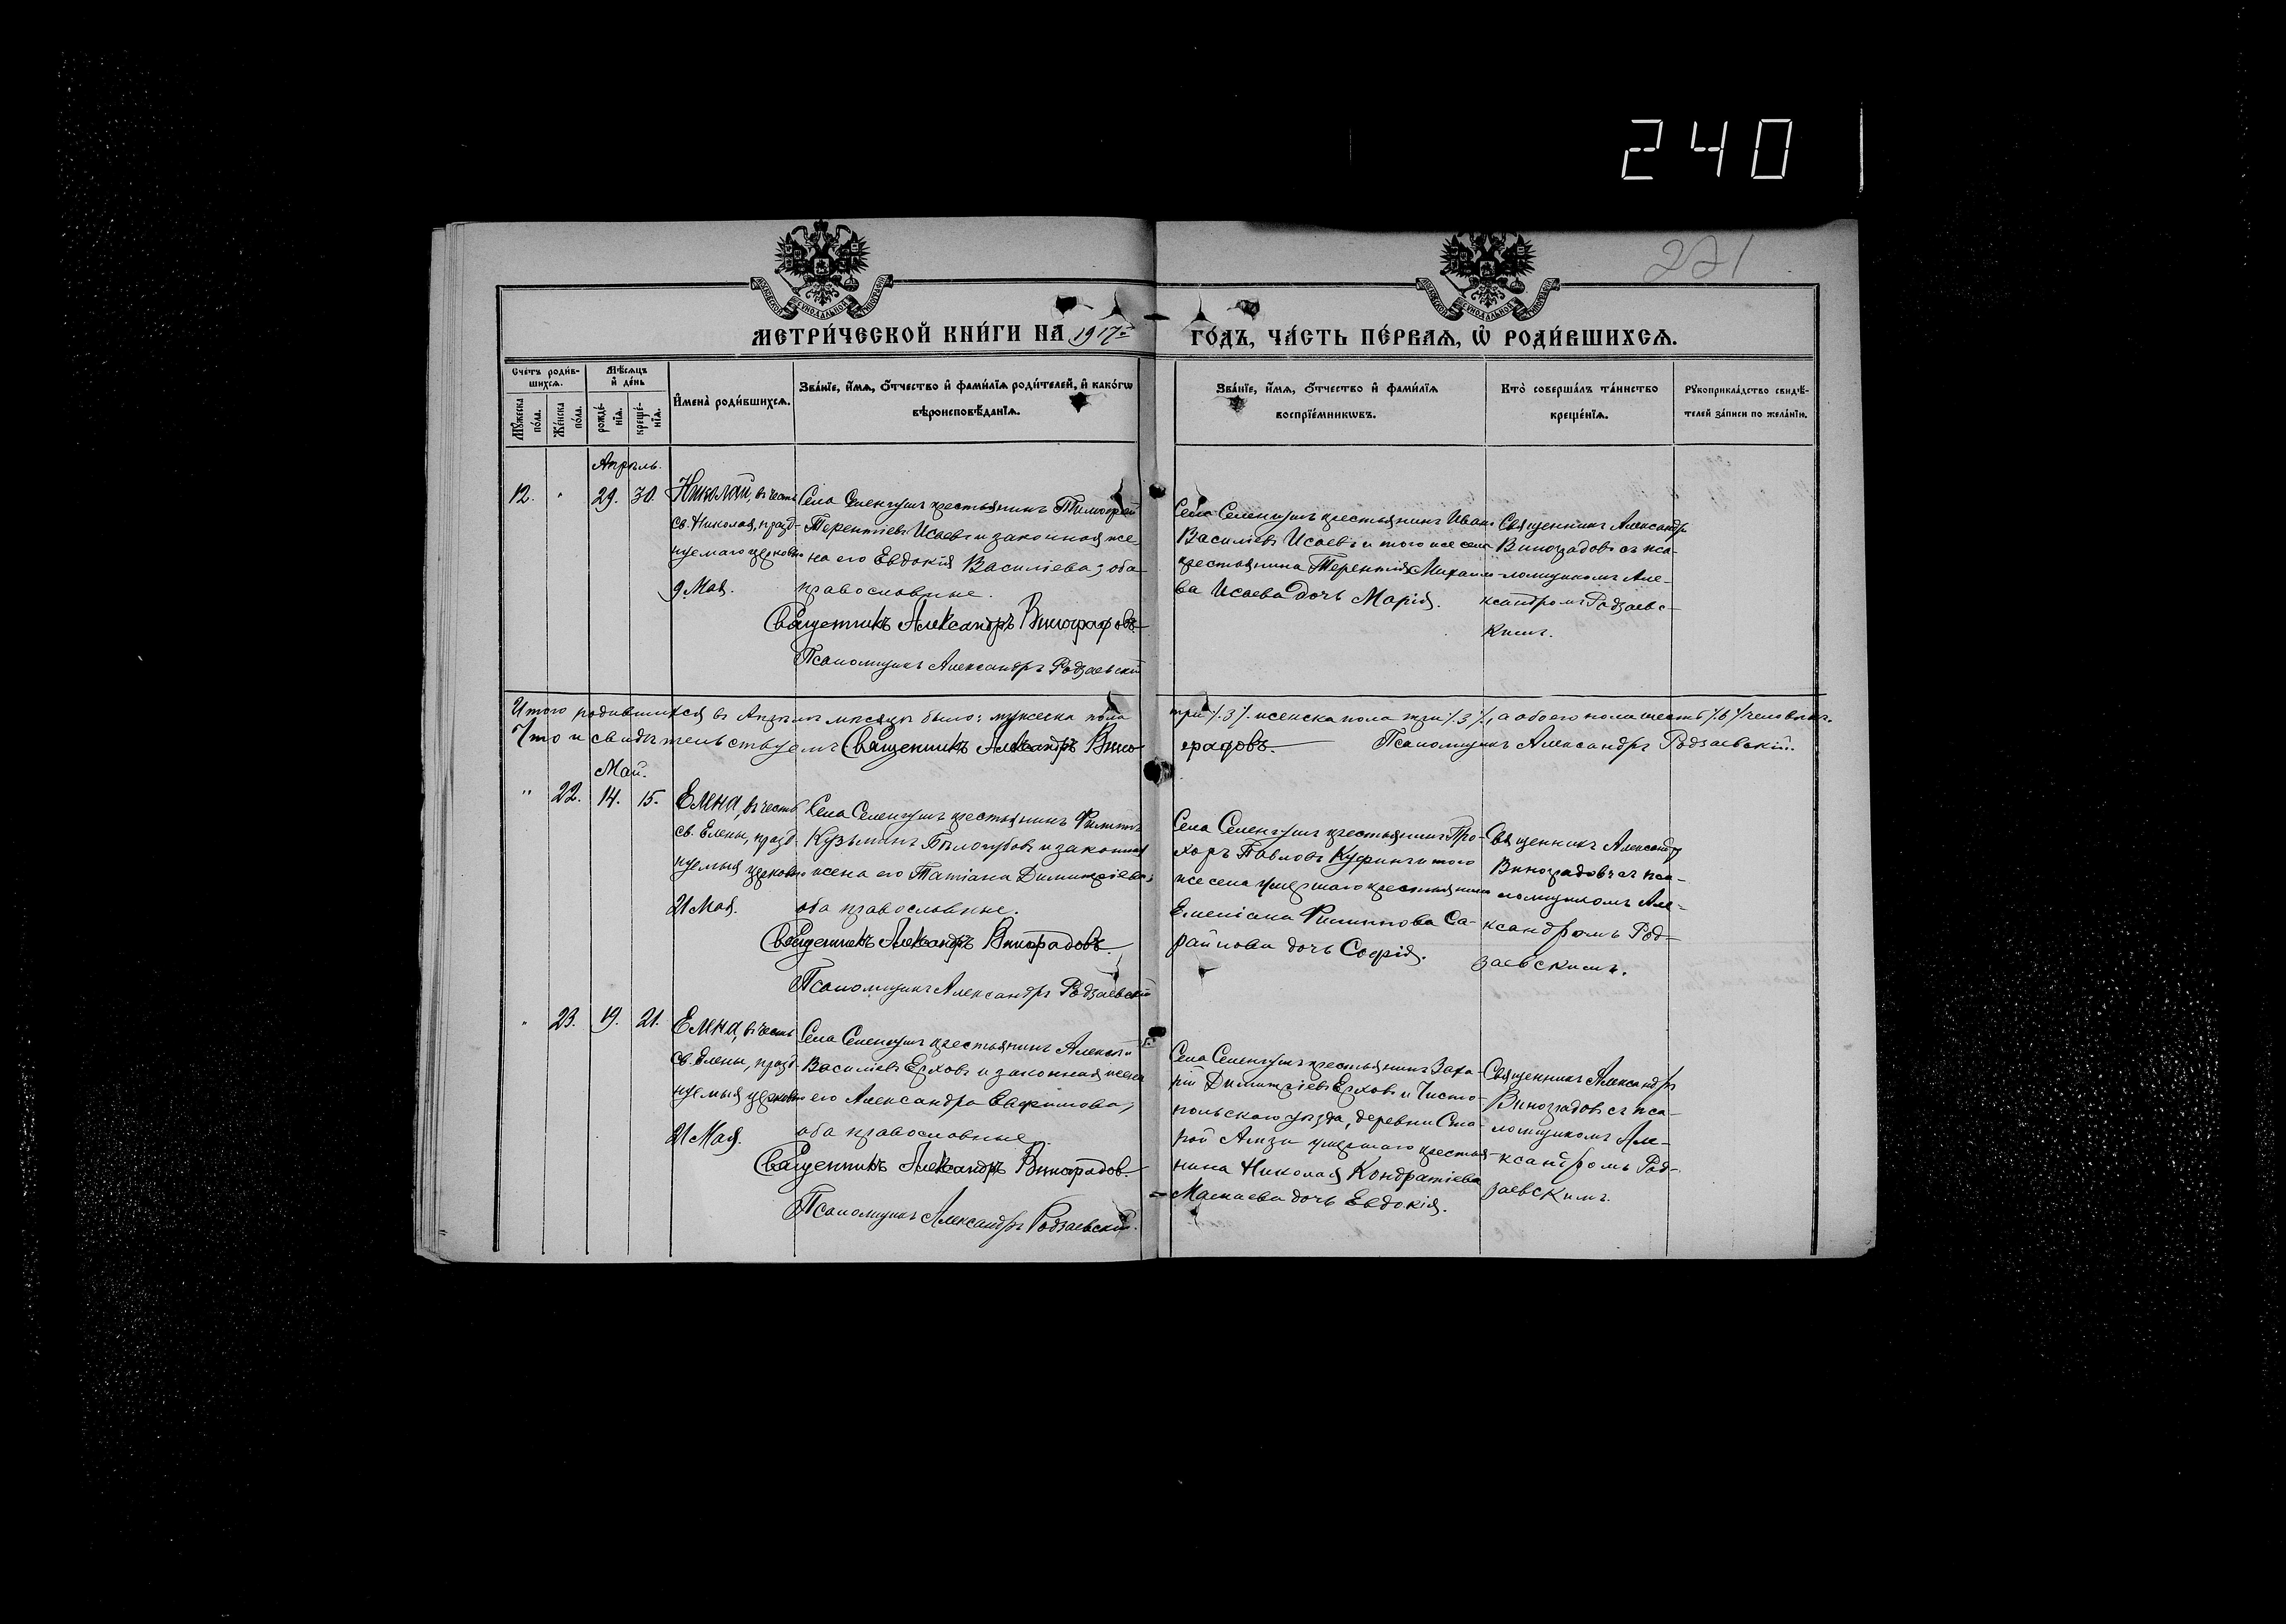 240
221
МЕТРИ́ЧЕСКОЙ КНИ́ГИ НА 1917й ГО́ДЪ, ЧА́СТЬ ПЕ́РВАЯ, Ѡ҆ РОДИ́ВШИХСЯ.
Счетъ роди́в-
шихся.
Мꙋ́жеска по́ла.
Же́нска по́ла.
Мѣ́сяцъ
и҆ де́нь
рожде́-
нїя.
креще́-
нїя.
И҆мена̀ роди́вшихся.
Зва́нїе, и҆́мя, ѻ҆́тчество и҆ фами́лїя роди́телей, и҆ како́гѡ
вѣроисповѣ́данїя.
Зва́нїе, и҆́мя, ѻ҆́тчество и҆ фами́лїя
воспрїе́мникѡвъ.
Кто̀ соверша́лъ та́инство
креще́нїя.
Рꙋкоприкла́дство свидѣ́-
телей за́писи по жела́нїю.
Апрѣль.
12. " 29. 30.
Николай, въ честь
св. Николая, празд-
нуемаго церковью
9 Мая.
Села Селенгушъ крестьянинъ Тимофей
Терентіевъ Исаевъ и законная же-
на его Евдокія Василіева, оба
православные.
Священникъ Александръ Виноградовъ
Псаломщикъ Александръ Родзаевскій
Села Селенгушъ крестьянинъ Иванъ
Василіевъ Исаевъ и того же села
крестьянина Терентія Михаило-
ва Исаева дочь Марія.
Священникъ Александръ
Виноградовъ съ пса-
ломщикомъ Але-
ксандромъ Родзаевс-
кимъ.
Итого родившихся въ Апрѣлѣ мѣсяцѣ было: мужеска пола три /3/. женска пола три /3/, а обоего пола шесть /6/ человѣкъ.
Что и свидѣтельствуемъ Священникъ Александръ Вино-градовъ. Псаломщикъ Александръ Родзаевскій.
Май.
" 22. 14. 15.
Елена, въ честь
св. Елены, празд-
нуемыя церковью
21 Мая.
Села Селенгушъ крестьянинъ Филиппъ
Кузьминъ Бѣлогубовъ и законная
жена его Татіана Димитріева,
оба православные.
Священникъ Александръ Виноградовъ.
Псаломщикъ Александръ Родзаевскій
Села Селенгушъ крестьянинъ Про-
хоръ Павловъ и того
же села умершаго крестьянина
Емеліана Филиппова Са-
райкова дочь Софія.
Священникъ Александръ
Виноградовъ съ пса-
ломщикомъ Але-
ксандромъ Род-
заевскимъ.
" 23. 19. 21.
Елена, въ честь
св. Елены, празд-
нуемыя церковью
21 Мая.
Села Селенгушъ крестьянинъ Алексѣй
Василіевъ Ерховъ и законная жена
его Александра Евфимова,
оба православные.
Священникъ Александръ Виноградовъ.
Псаломщикъ Александръ Родзаевскій.
Села Селенгушъ крестьянинъ Заха-
рій Димитріевъ Ерховъ и Чисто-
польскаго уѣзда, деревни Ста-
рой Амзи умершаго крестья-
нина Николая Кондратіева
дочь Евдокія.
Священникъ Александръ
Виноградовъ съ пса-
ломщикомъ Але-
ксандромъ Род-
заевскимъ.